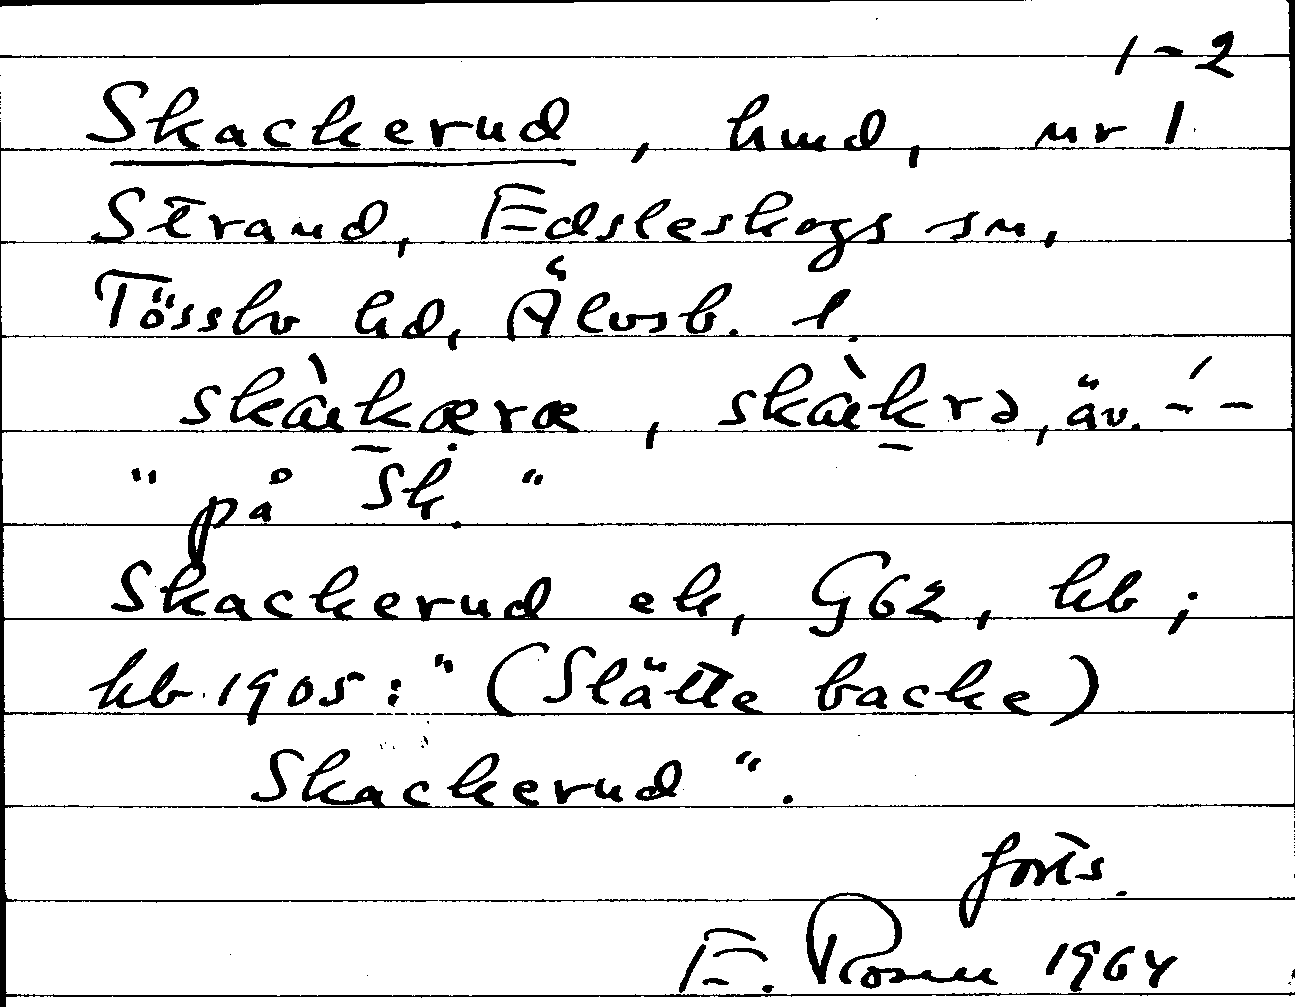 1-2
Skackerud, hmd, nr 1
Strand, Edsleskogs sn,
Tössbo hd, Älvsb. l.
skàkæræ, skàkrə, äv. ´- -
"på Sk."
Skackerud ek, G62, kb;
kb 1905: "(Slätte backe)
Skackerud".
forts.
E. Rosen 1964